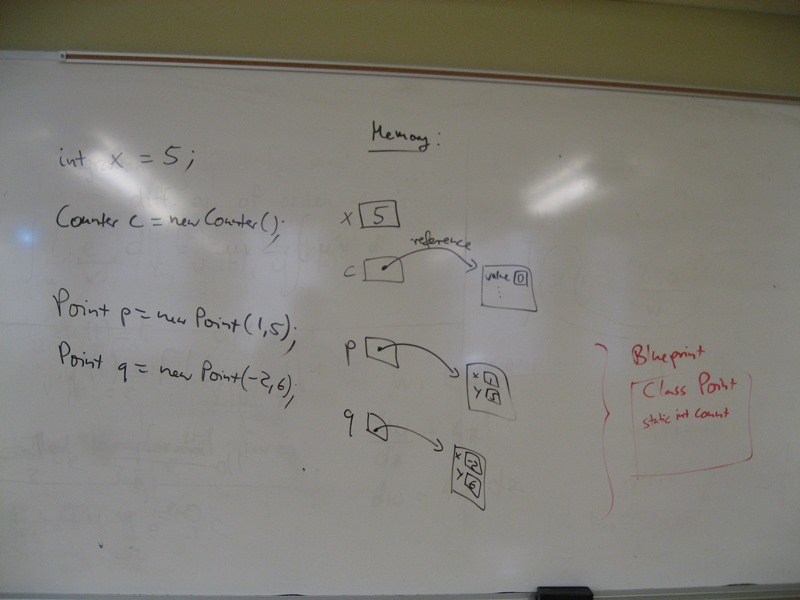 int x = 5;
Counter c = new Counter();
Point p = new Point(1,5);
Point q = new Point(-2,6);
Memory:
x 5
reference
c
value 0
p
x 1
y 5
q
x -2
y 6
Blueprint
Class Point
static int count